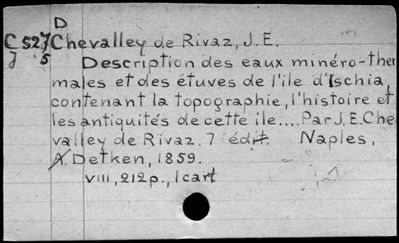 D
C527 Chevalley de Rivaz, J.E.
J 5 Description des eaux minéro-ther
males et des étuves de l'ile d'Ischia,
contenant la topographie, l'histoire et
les antiquités de cette ile....Par J.E.Che
valley de Rivaz. 7 édit. Naples,
A. Detken, 1859.
VIII, 212p., 1 cart